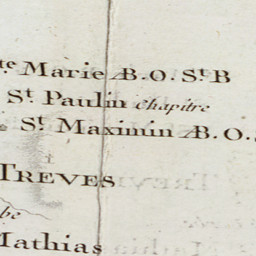 te Marie Æ.O.St B
St Paulin chapitre
St Maximin Æ.O.
TREVES
be
Mathias